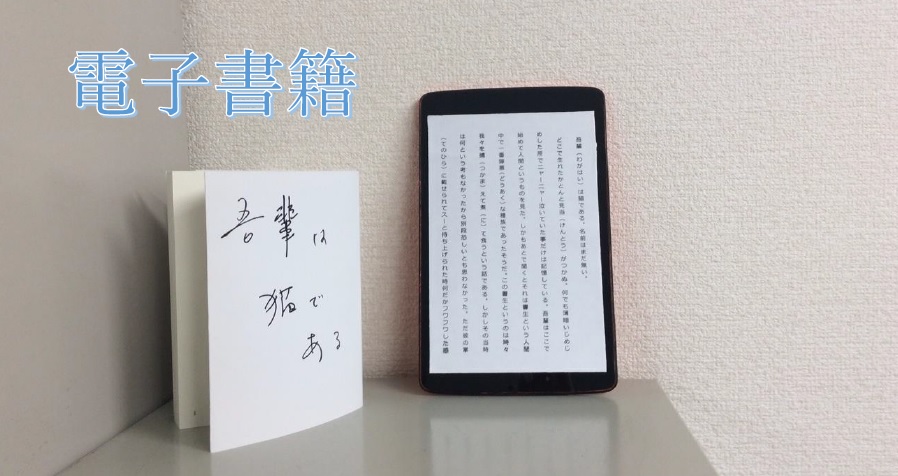 電子書籍
吾輩は
猫で
ある
吾輩(わがはい)は猫である。名前はまだ無い。
どこで生れたかとんと見当(けんとう)がつかぬ。何でも薄暗いじめじ
めした所でニャーニャー泣いていた事だけは記憶している。吾輩はここで
始めて人間というものを見た。しかもあとで聞くとそれは書生という人間
中で一番獰悪(どうあく)な種族であったそうだ。この書生というのは時々
我々を捕(つかま)えて煮(に)て食うという話である。しかしその当時
は何という考もなかったから別段恐しいとも思わなかった。ただ彼の掌
(てのひら)に載せられてスーと持ち上げられた時何だかフワフワした感